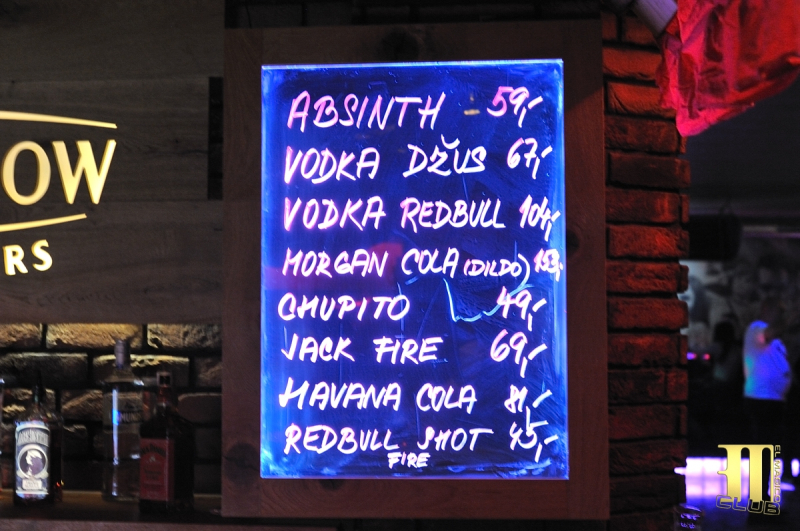 OW
RS
ABSINTH 59,-
VODKA DŽUS 67,-
VODKA REDBULL 104,-
MORGAN COLA (DILDO) 153,-
CHUPITO 49,-
JACK FIRE 69,-
HAVANA COLA 81,-
REDBULL SHOT 45,-
FIRE
CLUB